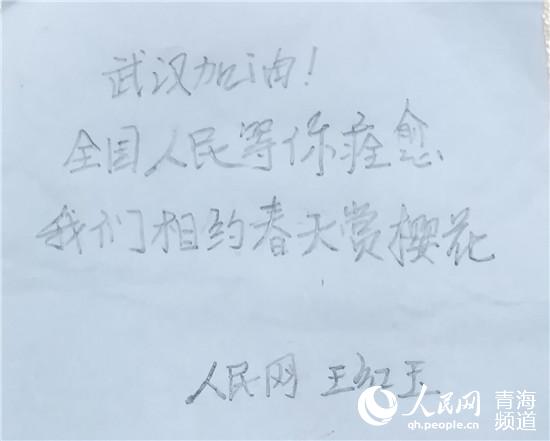 武汉加油!
全国人民等你痊愈
我们相约春天赏樱花
人民网 王红玉
人民网 青海频道
qh.people.cn